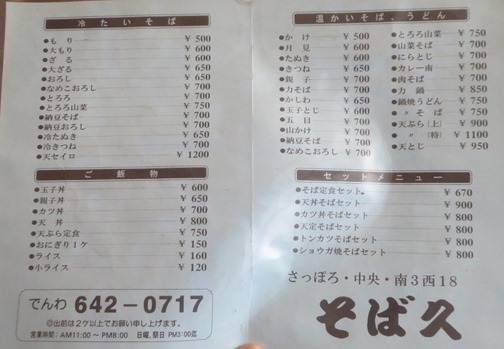 冷たいそば
●もり ¥ 500
●大もり ¥ 600
●ざる ¥ 600
●大ざる ¥ 650
●おろし ¥ 650
●なめこおろし ¥ 700
●とろろ ¥ 700
●とろろ山菜 ¥ 750
●納豆そば ¥ 700
●納豆おろし ¥ 700
●冷たぬき ¥ 650
●冷きつね ¥ 700
●天セイロ ¥ 1200
ご飯物
●玉子丼 ¥ 600
●親子丼 ¥ 650
●カツ丼 ¥ 700
●天丼 ¥ 800
●天ぷら定食 ¥ 750
●おにぎり1ケ ¥ 150
●ライス ¥ 160
●小ライス ¥ 120
でんわ 642-0717
◎出前は2ケ以上でお願い申し上げます。
営業時間:AM11:00〜PM8:00 日曜、祭日 PM3:00迄
温かいそば、うどん
●かけ ¥ 500
●月見 ¥ 600
●たぬき ¥ 600
●きつね ¥ 650
●親子 ¥ 700
●力そば ¥ 700
●かしわ ¥ 650
●玉子とじ ¥ 600
●五目 ¥ 700
●山かけ ¥ 700
●納豆そば ¥ 700
●なめこおろし ¥ 700
●とろろ山菜 ¥ 750
●山菜そば ¥ 700
●にらとじ ¥ 700
●カレー南 ¥ 700
●肉そば ¥ 700
●力鍋 ¥ 850
●鍋焼うどん ¥ 750
●〃そば ¥ 750
●天ぷら(上) ¥ 900
●〃(特) ¥ 1100
●天とじ ¥ 950
セットメニュー
●そば定食セット ¥ 670
●天丼そばセット ¥ 900
●カツ丼そばセット ¥ 800
●天定そばセット ¥ 800
●トンカツそばセット ¥ 800
●ショウガ焼そばセット ¥ 800
さっぽろ・中央・南3西18
そば久